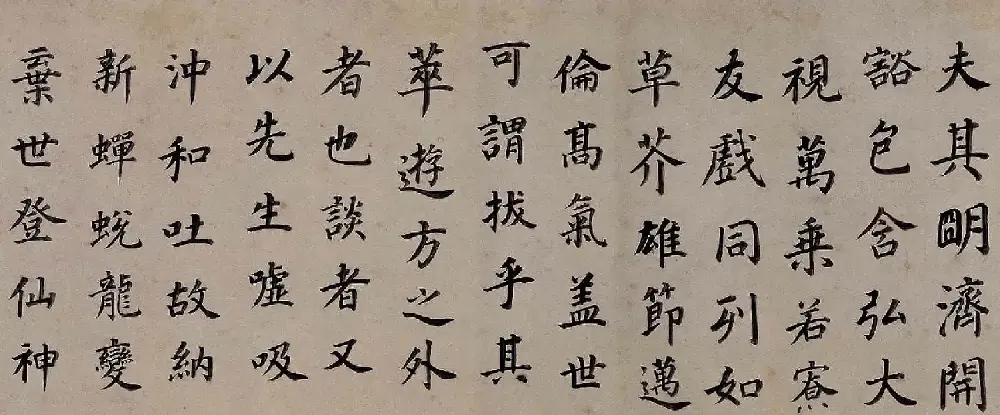 夫其眀濟開
豁包含弘大
視萬乗若寮
友戲同列如
草芥雄節邁
倫髙氣盖世
可謂拔乎其
萃遊方之外
者也談者又
以先生嘘吸
沖和吐故納
新蟬蛻龍變
棄世登仙神